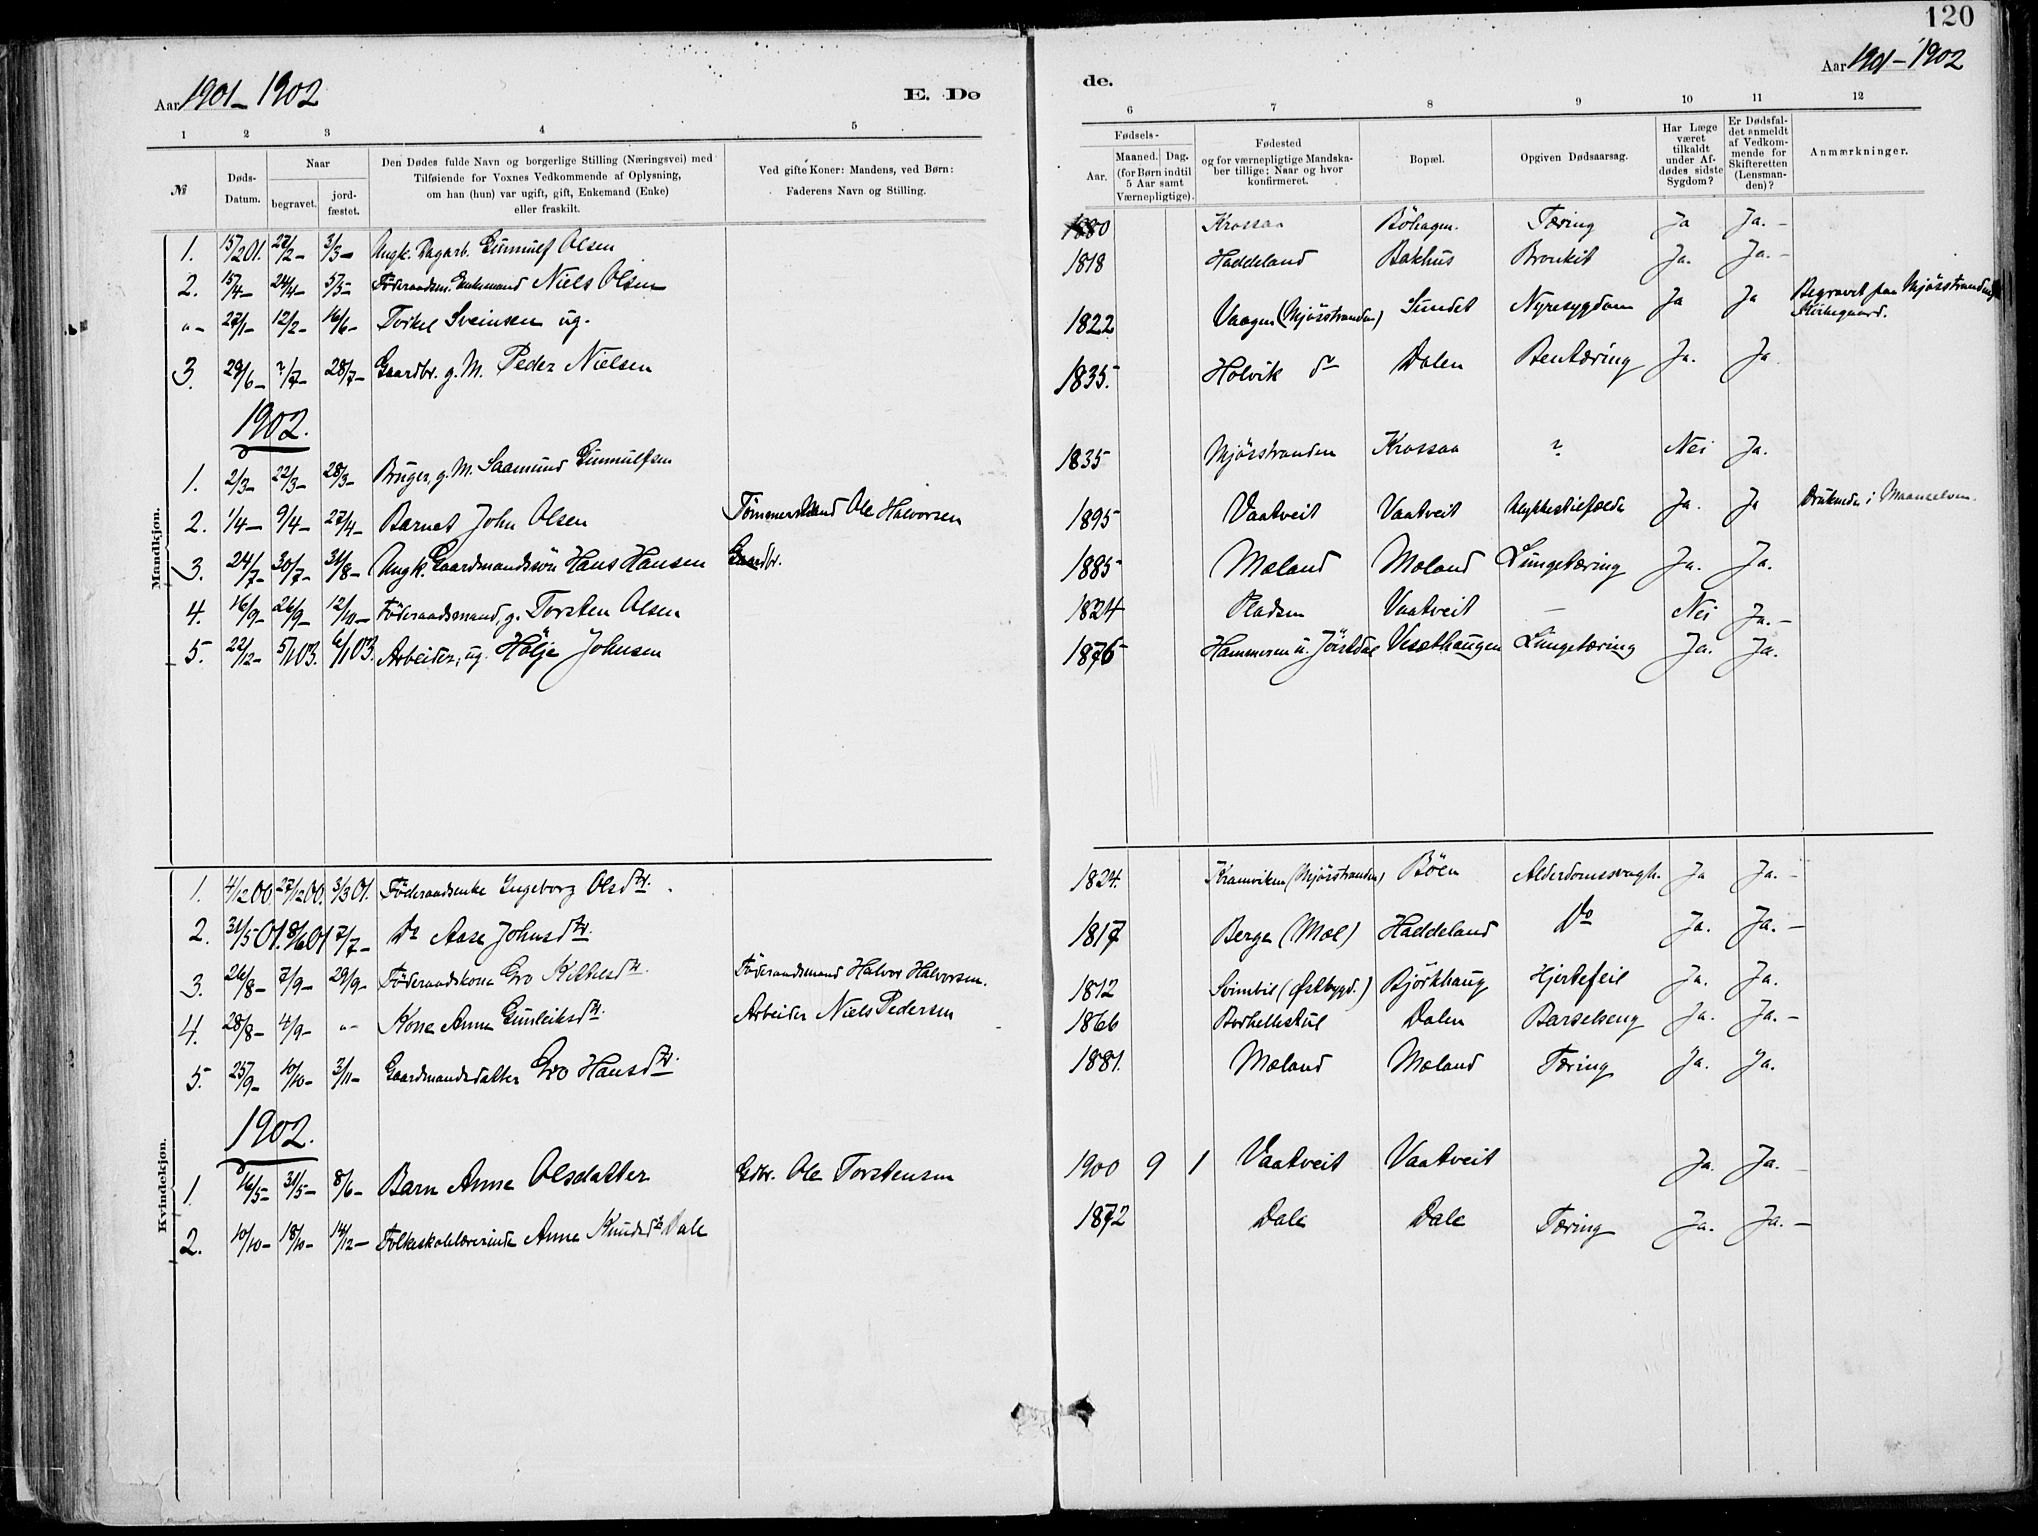 120
Aar 1901-1902
E. Dø
de.
Aar 1901-1902
1 2 3 4 5
6 7 8 9 10 11 12
№
Døds-Datum.
Naar
begravet.
jord-fæstet.
Den Dødes fulde Navn og borgerlige Stilling (Næringsvei) med
Tilføiende for Voxnes Vedkommende af Oplysning,
om han (hun) var ugift, gift, Enkemand (Enke)
eller fraskilt.
Ved gifte Koner: Mandens, ved Børn:
Faderens Navn og Stilling.
Fødsels-
Aar.
Maaned. Dag.
(for Børn indtil
5 Aar samt
Værnepligtige).
Fødested
og for værnepligtige Mandska-
ber tillige: Naar og hvor
konfirmeret.
Bopæl.
Opgiven Dødsaarsag.
Har Læge
været
tilkaldt
under Af-
dødes sidste
Sygdom?
Er Dødsfal-
det anmeldt
af Vedkom-
mende for
Skifteretten
(Lensman-
den)?
Anmærkninger.
Mandkjøn.
1. 15/2 01. 27/2- 3/3- Ungk. Dagarb. Gunnulf Olsen 1880 Krossaa Böhagen. Tæring Ja Ja.-
2. 15/4- 24/4- 5/5- Föderaadsm. Enkemand Niels Olsen 1818 Haddeland Bakhus Bronkit Ja. Ja.-
"- 27/1- 12/2- 16/6- Torkel Sveinsen ug. 1822 Vaagen (Mjösstranden) Sundet Nyresygdom Ja Ja Begravet paa Mjösstrandens
Kirkegaard.
3. 29/6- 7/7- 28/7- Gaardbr. g. M. Peder Nielsen 1835. Holvik do Dalen Bentæring Ja. Ja
1902.
1. 2/3- 22/3- 28/3- Bruger, g. M. Saamund Gunnulfsen 1835 Mjösstranden Krossaa ? Nei Ja.
2. 1/4- 9/4- 27/4- Barnet John Olsen Tömmermand Ole Halvorsen 1895 Vaatveit Vaatveit Ulykkestilfælde Ja. Ja Druknede i Maanselven.
3. 24/7- 30/7- 31/8- Ungk. Gaardmandssön Hans Hansen Gaardbr. 1885 Mæland Mæland Lungetæring Ja. Ja.
4. 16/9- 26/9- 12/10- Föderaadsmand, g. Torsten Olsen 1824 Pladsen Vaatveit - Nei Ja.-
5. 22/12- 5/1 03. 6/1 03. Arbeider, ug. Hölje Johnsen 1876 Hammeren u. Jöistdal Vesæthaugen Lungetæring Ja. Ja.
Kvindekjøn.
1. 4/12 00. 27/12 00. 3/3 01. Föderaadsenke Ingeborg Olsdtr. 1824. Kramviken (Mjösstranden) Böen Alderdomssvagh. Ja Ja.-
2. 31/5 01. 8/6 01 7/7- Do Aase Johnsdtr. 1817 Berge (Mæl) Haddeland Do Ja. Ja.-
3. 26/8- 7/9- 29/9- Föderaadskone Gro Kittelsdtr. Föderaadsmand Halvor Halvorsen. 1812 Svimbil (Østbygd.) Björkhaug Hjertefeil Ja. Ja.
4. 28/8- 4/9- "- Kone Anne Gunleiksdtr. Arbeider Niels Pedersen 1866 Dalen Barselseng Ja. Ja.-
5. 25/9- 10/10- 3/11- Gaardmandsdatter Gro Hansdtr. 1881. Mæland Mæland Tæring Ja. Ja.
1902.
1. 16/5- 31/5- 8/6- Barn Anne Olsdatter Gdbr. Ole Torstensen 1900 9 1 Vaatveit Vaatveit Ja. Ja.-
2. 10/10- 18/10- 14/12- Folkeskolelærerinde Anne Knudsdtr. Dale 1872 Dale Dale Tæring Ja. Ja.-